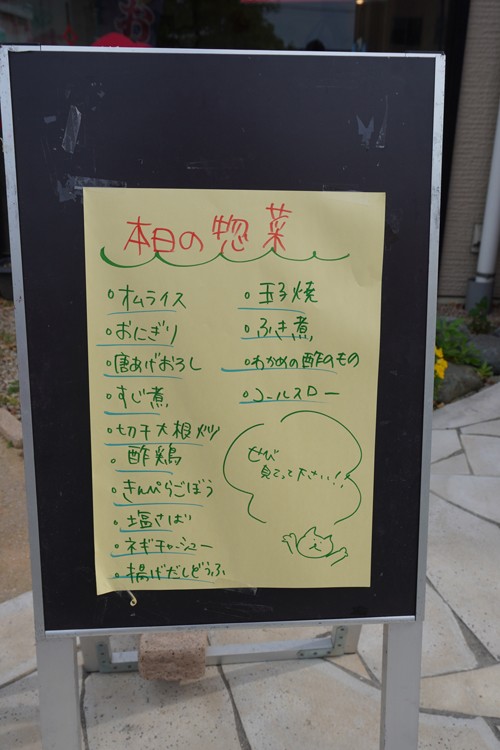 本日の惣菜
オムライス
おにぎり
唐あげおろし
すじ煮
切干大根炒
酢鶏
きんぴらごぼう
塩さば
ネギチャーシュー
揚げだしどうふ
玉子焼
ふき煮
わかめの酢のもの
コールスロー
ぜひ
見てって下さい!!